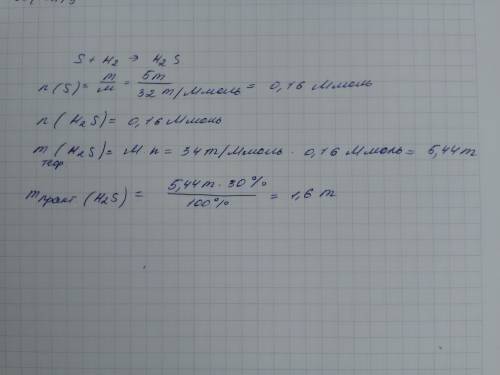 S + H₂ → H₂S
n(S) = m/M = 5т / 32 т/Ммоль = 0,16 Ммоль
n(H₂S) = 0,16 Ммоль
m теор (H₂S) = M·n = 34 т/Ммоль · 0,16 Ммоль = 5,44 т
m практ (H₂S) = 5,44 т · 30% / 100% = 1,6 т